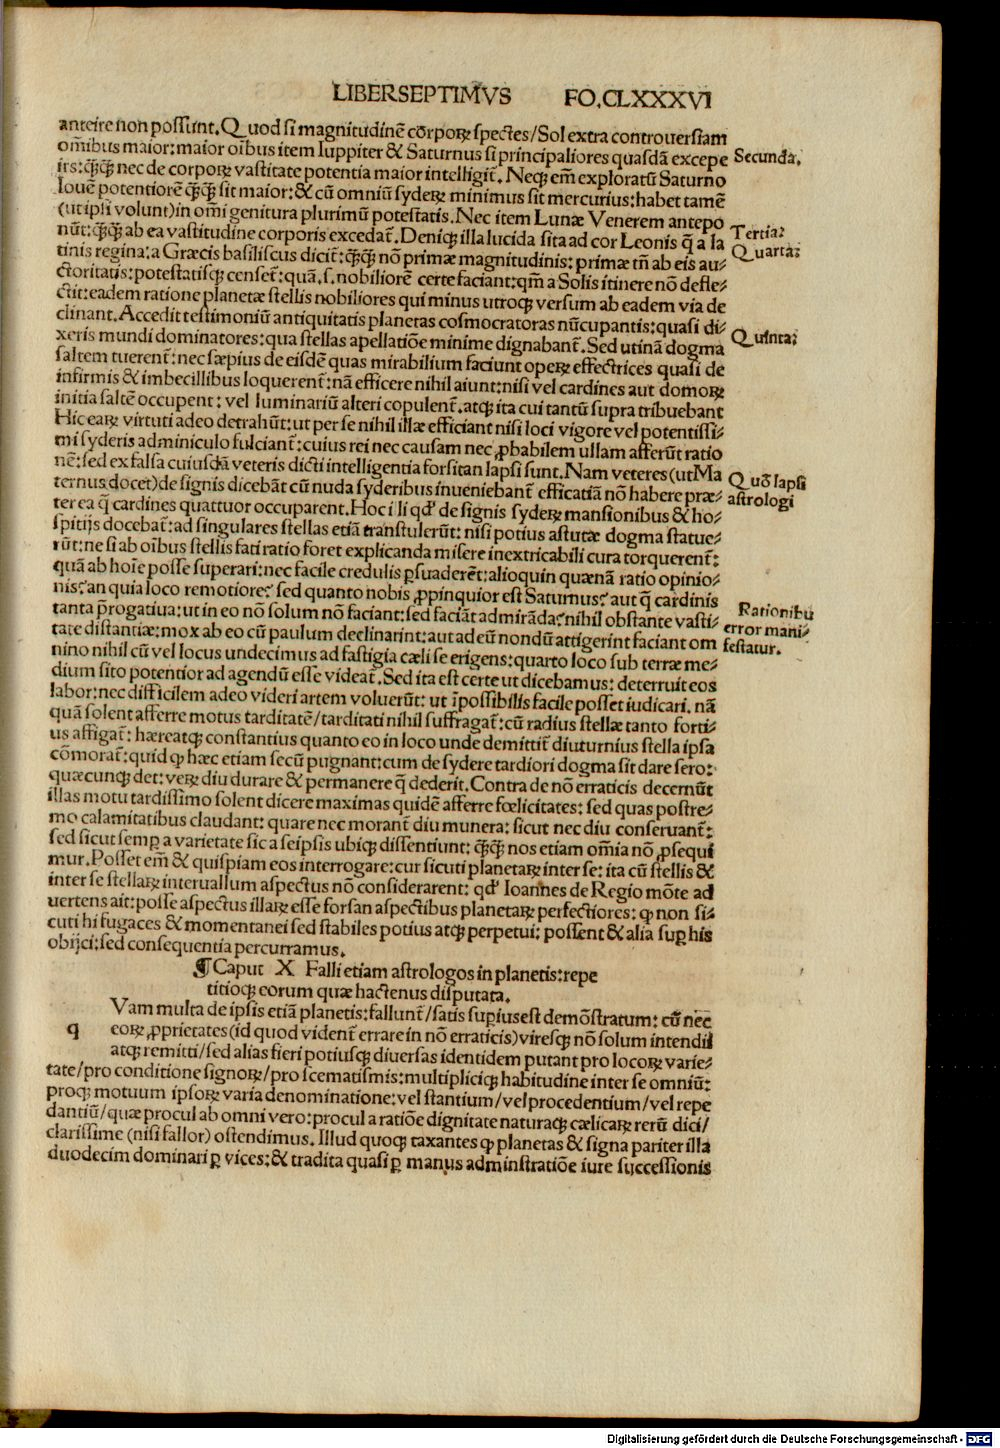 LIBER SEPTIMVS FO.CLXXXVI
anteire non possunt. Quod si magnitudinē corporꝝ spectes/Sol extra controuersiam
om̄ibus maior: maior oībus item Iuppiter & Saturnus si principaliores quasdā excepe
ris: q̄q̄ nec de corporꝝ vastitate potentia maior intelligit̄. Neqꝫ em̄ exploratū Saturno
Iouē potentiorē q̄q̄ sit maior: & cū omniū syderꝝ minimus sit mercurius: habet tamē
(ut ipsi volunt) in om̄i genitura plurimū potestatis. Nec item Lunæ Venerem antepo
nūt: q̄q̄ ab ea vastitudine corporis excedat̄. Deniqꝫ illa lucida sita ad cor Leonis q̄ a la
tinis regina: a Græcis basiliscus dicit̄: q̄q̄ nō primæ magnitudinis: primæ tn̄ ab eis au-
ctoritatis: potestatisqꝫ censet̄: quā .s. nobiliorē certe faciant: qm̄ a Solis itinere nō defle-
ctit: eadem ratione planetæ stellis nobiliores qui minus utroqꝫ versum ab eadem via de
clinant. Accedit testimoniū antiquitatis planetas cosmocratoras nūcupantis: quasi di-
xeris mundi dominatores: qua stellas apellatiōe minime dignabant̄. Sed utinā dogma
saltem tuerent̄: nec sæpius de eisdē quas mirabilium faciunt operꝝ effectrices quasi de
infirmis & imbecillibus loquerent̄: nā efficere nihil aiunt: nisi vel cardines aut domorꝝ
initia saltē occupent: vel luminariū alteri copulent̄. atqꝫ ita cui tantū supra tribuebant
Hic earꝝ virtuti adeo detrahūt: ut per se nihil illæ efficiant nisi loci vigore vel potentissi-
mi syderis adminiculo fulciant̄: cuius rei nec causam nec ꝓbabilem ullam afferūt ratio
nē: sed ex falsa cuiusdā veteris dicti intelligentia forsitan lapsi sunt. Nam veteres (ut Ma
ternus docet) de signis dicebāt cū nuda syderibus inueniebant̄ efficatiā nō habere præ-
ter ea q̄ cardines quattuor occuparent. Hoc i li qd' de signis syderꝝ mansionibus & ho-
spitijs docebat̄: ad singulares stellas etiā transtulerūt: nisi potius astutæ dogma statue-
rūt: ne si ab oībus stellis fati ratio foret explicanda misere inextricabili cura torquerent̄:
quā ab hoīe posse superari: nec facile credulis ꝑsuaderēt: alioquin quænā ratio opinio-
nis? an quia loco remotiore? sed quanto nobis ꝓpinquior est Saturnus? aut q̄ cardinis
tanta p̄rogatiua: ut in eo nō solum nō faciant: sed faciāt admirāda? nihil obstante vasti-
tate distantiæ: mox ab eo cū paulum declinarint: aut ad eū nondū attigerint faciant om
nino nihil cū vel locus undecimus ad fastigia cæli se erigens: quarto loco sub terræ me-
dium sito potentior ad agendū esse videat̄. Sed ita est certe ut dicebamus: deterruit eos
labor: nec difficilem adeo videri artem voluerūt: ut īpossibilis facile posset iudicari. nā
quā solent afferre motus tarditatē/tarditati nihil suffragat̄: cū radius stellæ tanto forti-
us affigat̄: hæreatqꝫ constantius quanto eo in loco unde demittit̄ diuturnius stella ipsa
cōmorat̄: quid ꝙ hæc etiam secū pugnant: cum de sydere tardiori dogma sit dare sero:
quæcunqꝫ det: verꝝ diu durare & permanere q̄ dederit. Contra de nō erraticis decernūt
illas motu tardissimo solent dicere maximas quidē afferre fœlicitates: sed quas postre-
mo calamitatibus claudant: quare nec morant̄ diu munera: sicut nec diu conseruant̄:
sed sicut semꝑ a varietate sic a seipsis ubiqꝫ dissentiunt: q̄q̄ nos etiam om̄ia nō ꝓsequi
mur. Posset em̄ & quispiam eos interrogare: cur sicuti planetarꝝ inter se: ita cū stellis &
inter se stellarꝝ interuallum aspectus nō considerarent: qd' Ioannes de Regio mōte ad
uertens ait: posse aspectus illarꝝ esse forsan aspectibus planetarꝝ perfectiores: ꝙ non si-
cuti hi fugaces & momentanei sed stabiles potius atqꝫ perpetui: possent & alia suꝑ his
obijci: sed consequentia percurramus.
¶ Caput X Falli etiam astrologos in planetis: repe
titioqꝫ eorum quæ hactenus disputata.
q Vam multa de ipsis etiā planetis: fallunt̄/satis suꝑius est demōstratum: cū nec
eorꝝ ꝓprietates (id quod vident̄ errare in nō erraticis) viresqꝫ nō solum intendi
atqꝫ remitti/sed alias fieri potiusqꝫ diuersas identidem putant pro locorꝝ varie-
tate/pro conditione signorꝝ/pro scematismis: multipliciqꝫ habitudine inter se omniū:
proqꝫ motuum ipsorꝝ varia denominatione: vel stantium/vel procedentium/vel repe
dantiū/quæ procul ab omni vero: procul a ratiōe dignitate naturaqꝫ cælicarꝝ rerū dici/
clarissime (nisi fallor) ostendimus. Illud quoqꝫ taxantes ꝙ planetas & signa pariter illa
duodecim dominari ꝑ vices: & tradita quasi ꝑ manus adminstratiōe iure successionis
Secunda.
Tertia:
Quarta:
Quinta:
Quō lapsi
astrologi
Rationibu
error mani-
festatur.
Digitalisierung gefördert durch die Deutsche Forschungsgemeinschaft - DFG